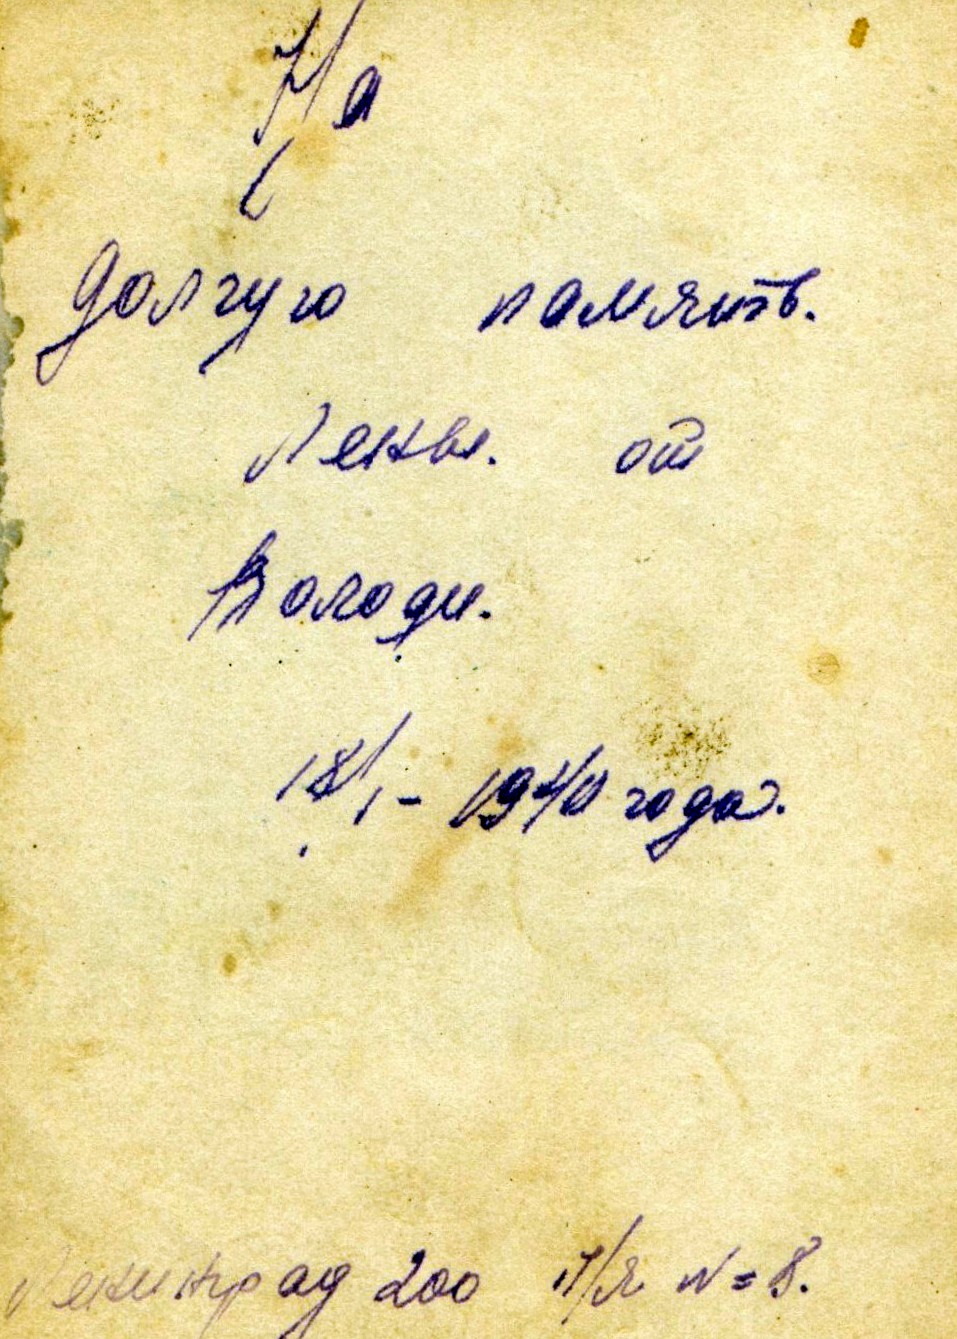 На
долгую память.
Лены. от
Володи.
18/1 - 1940 года.
Ленинград 200 п/я N=8.